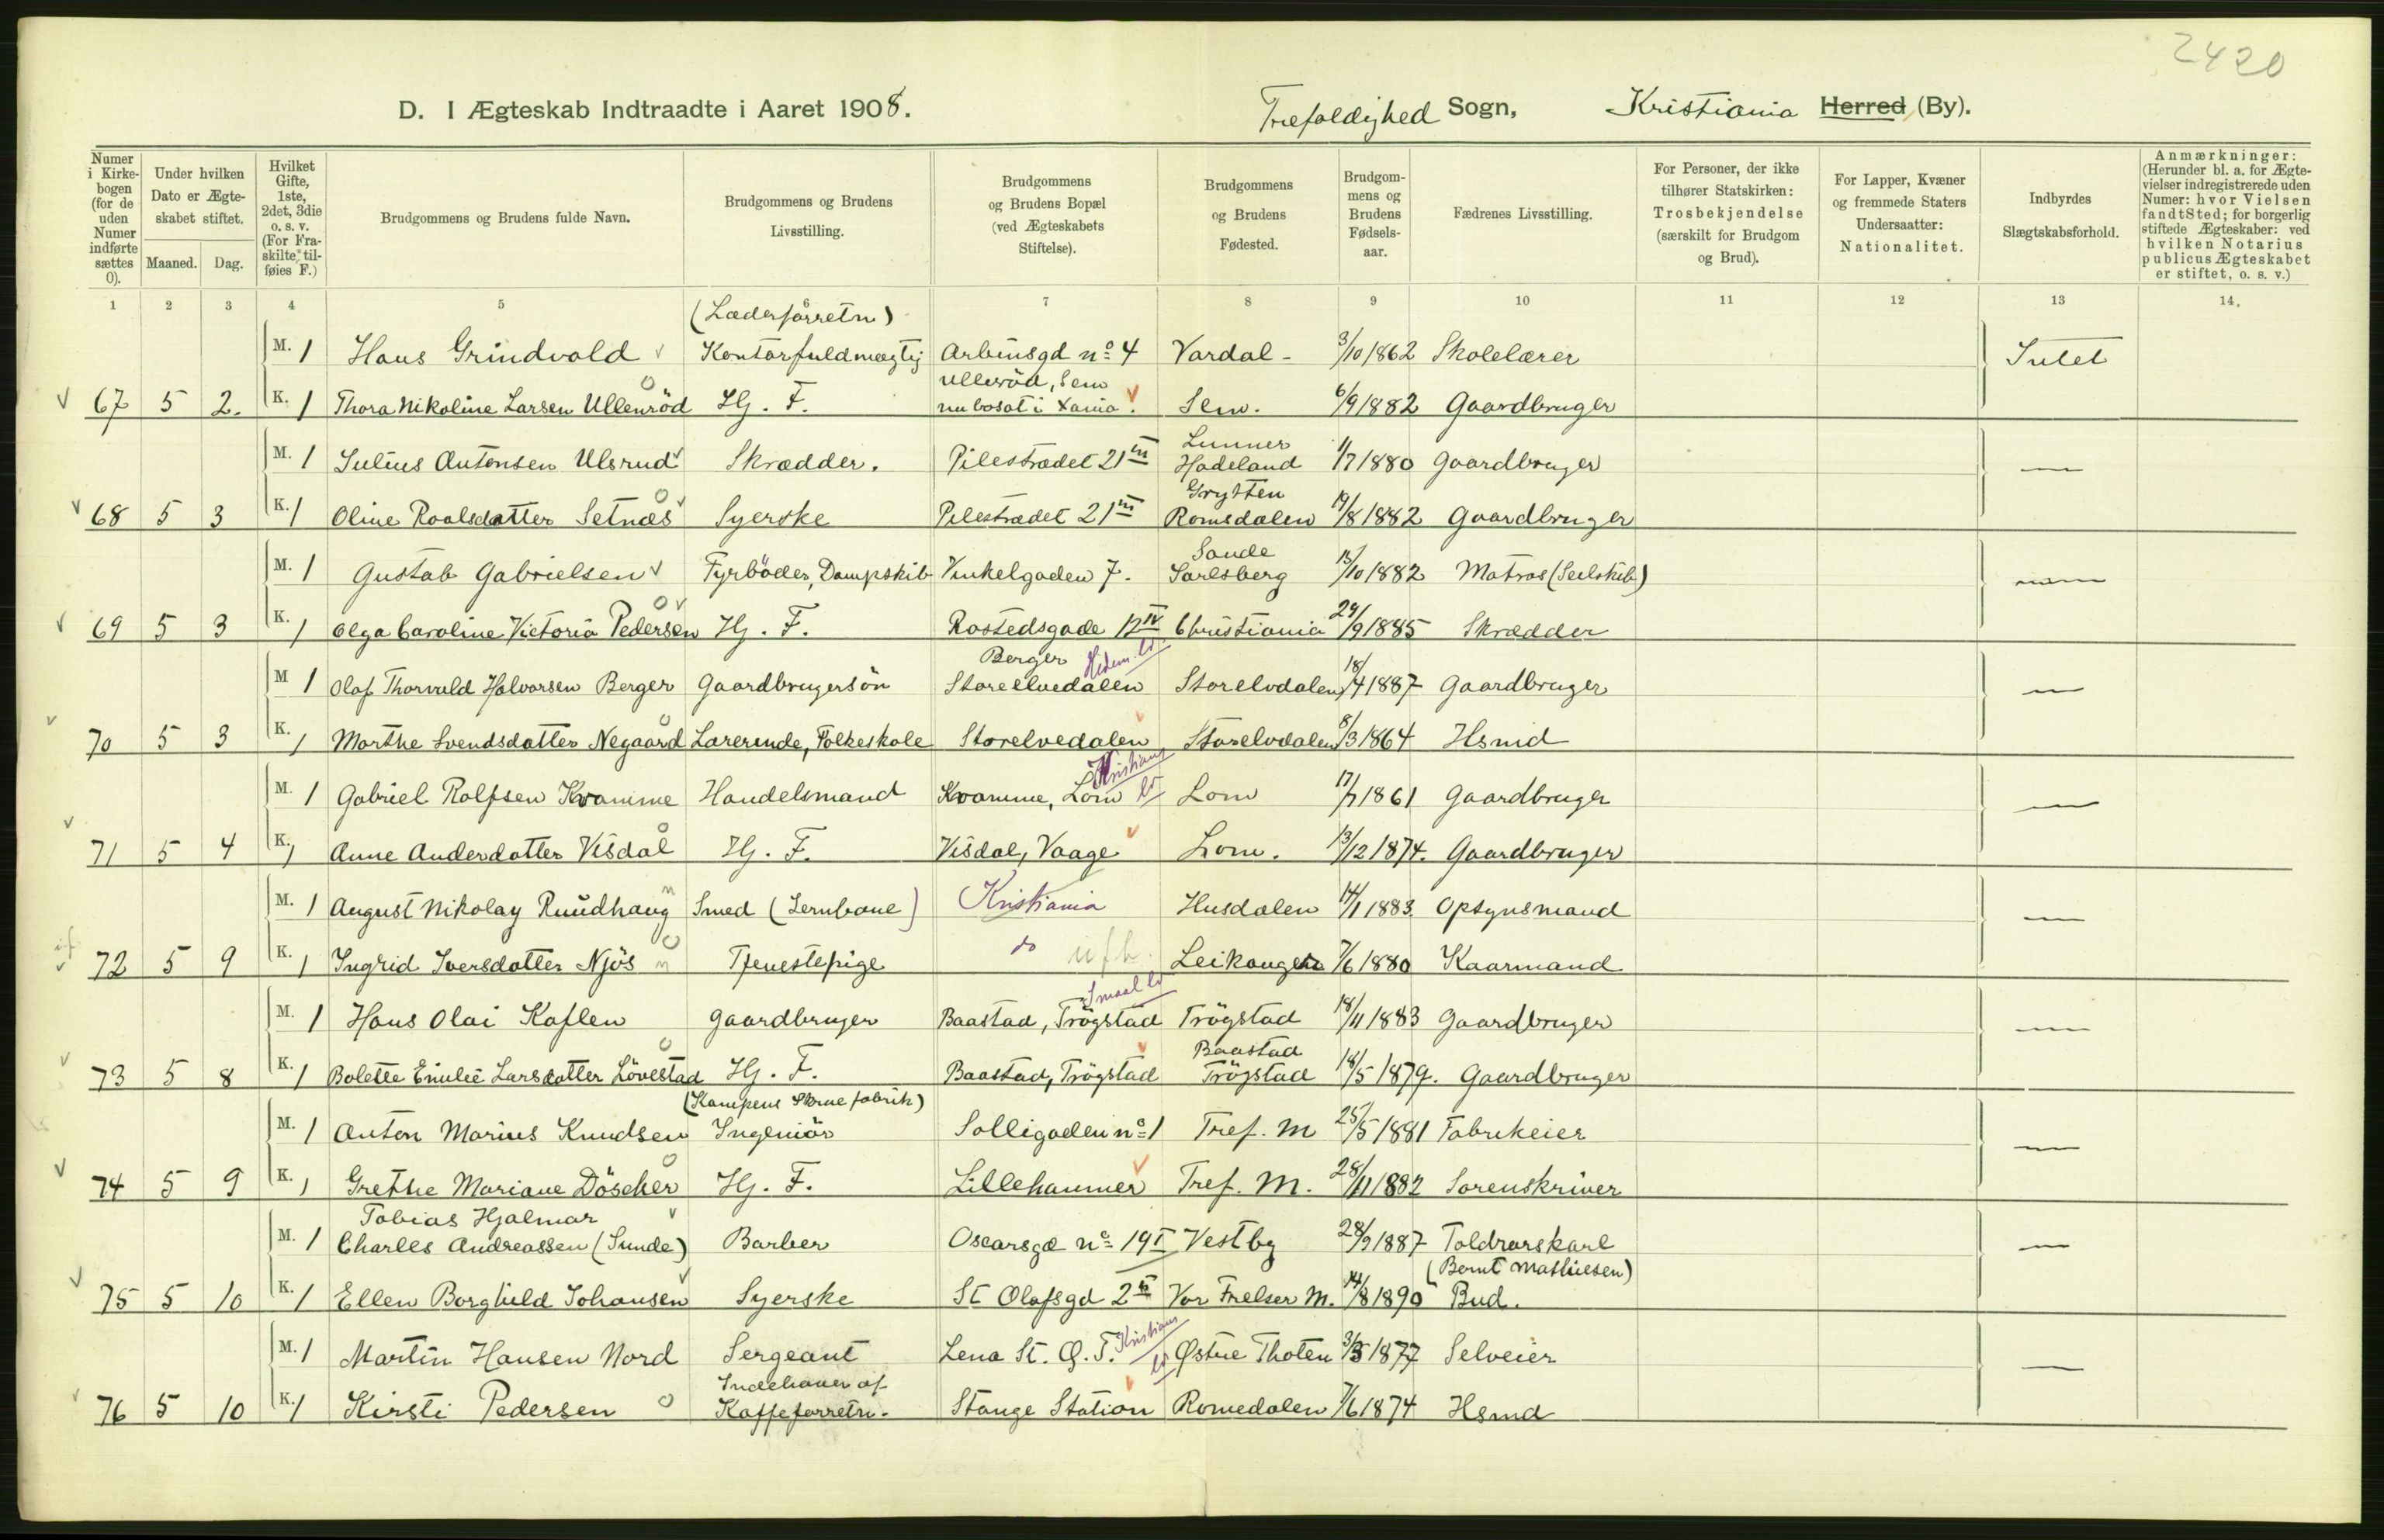 2420
D. I Ægteskab Indtraadte i Aaret 1908. Trefoldighed Sogn, Kristiania Herred (By).
Numer i Kirkebogen (for de uden Numer indførte sættes 0).
Under hvilken Dato er Ægteskabet stiftet. Maaned. Dag.
Hvilket Gifte, 1ste, 2det, 3die o. s. v. (For Fraskilte tilføies F.)
Brudgommens og Brudens fulde Navn.
Brudgommens og Brudens Livsstilling.
Brudgommens og Brudens Bopæl (ved Ægteskabets Stiftelse).
Brudgommens og Brudens Fødested.
Brudgommens og Brudens Fødselsaar.
Fædrenes Livsstilling.
For Personer, der ikke tilhører Statskirken: Trosbekjendelse (særskilt for Brudgom og Brud).
For Lapper, Kvæner og fremmede Staters Undersaatter: Nationalitet.
Indbyrdes Slægtskabsforhold.
Anmærkninger: (Herunder bl. a. for Ægtevielser indregistrerede uden Numer: hvor Vielsen fandt Sted; for borgerlig stiftede Ægteskaber: ved hvilken Notarius publicus Ægteskabet er stiftet, o. s. v.)
1 2 3 4 5 6 7 8 9 10 11 12 13 14.
(Læderforretn)
M. 1 Hans Grindvold Kontorfuldmægtig Arbinsgd no 4 Vardal - 3/10 1862 Skolelærer Intet
Ullerød, Sem
67 5 2. K. 1 Thora Nikoline Larsen Ullenröd Hj. F. nu bosat i Xania. Sem. 6/9 1882 Gaardbruger
Lunner
M. 1 Julius Antonsen Ulsrud Skrædder. Pilestrædet 21 III Hadeland 1/7 1880 Gaardbruger —
Grytten
68 5 3 K. 1 Oline Roalsdatter Setnæs Syerske Pilestrædet 21 III Romsdalen 19/8 1882 Gaardbruger
Sande
M. 1 Gustab Gabrielsen Fyrböder, Dampskib Vinkelgaden 7. Jarlsberg 13/10 1882 Matros (Seilskib) —
69 5 3 K. 1 Olga Caroline Victoria Pedersen Hj. F. Rostedsgade 12 IV Christiania 29/9 1885 Skrædder
Berger Hedem. lv
M 1 Olaf Thorvald Halvorsen Berger Gaardbrugersön Storelvedalen Storelvdalen 18/4 1887 Gaardbruger —
70 5 3 K. 1 Marthe Svendsdatter Negaard Lærerinde, Folkeskole Storelvedalen Storelvdalen 8/3 1864 Hsmd
Kristians
M. 1 Gabriel Rolfsen Kvamme Handelsmand Kvamme, Lom Lom 17/7 1861 Gaardbruger —
71 5 4 K. 1 Anne Andersdatter Visdal Hj. F. Visdal, Vaage Lom. 13/12 1874. Gaardbruger
M. 1 August Nikolay Ruudhaug Smed (Jernbane) Kristiania Husdalen 14/1 1883. Opsynsmand —
72 5 9 K. 1 Ingrid Iversdatter Njös Tjenestepige do ufh. Leikanger 7/6 1880 Kaarmand
Smaal lv
M. 1 Hans Olai Kaflen Gaardbruger Baastad, Trögstad Trögstad 18/11 1883 Gaardbruger —
Baastad
73 5 8 K. 1 Bolette Emilie Larsdatter Lövestad Hj. F. Baastad, Trögstad Trögstad 14/5 1879. Gaardbruger
(Kampens Skruefabrik)
M. 1 Anton Marius Knudsen Ingeniör Solligaden no 1 Tref. M 25/5 1881 Fabrikeier —
74 5 9 K. 1 Grethe Mariane Döscher Hj. F. Lillehammer Tref. M. 28/11 1882 Sorenskriver
Tobias Hjalmar
M. 1 Charles Andreassen (Sunde) Barber Oscarsgd no 19 I Vestby 28/9 1887 Toldrorskarl —
(Bernt Mathiesen)
75 5 10 K. 1 Ellen Borghild Johansen Syerske St Olafsgd 2 II Vor Frelser M. 14/8 1890 Bud.
Kristians
M. 1 Martin Hansen Nord Sergeant Lena St. Ø. T. lv Østre Thoten 3/5 1877 Selveier —
Indehaver af
76 5 10 K. 1 Kirsti Pedersen Kaffeforretn. Stange Station Romedalen 7/6 1874 Hsmd